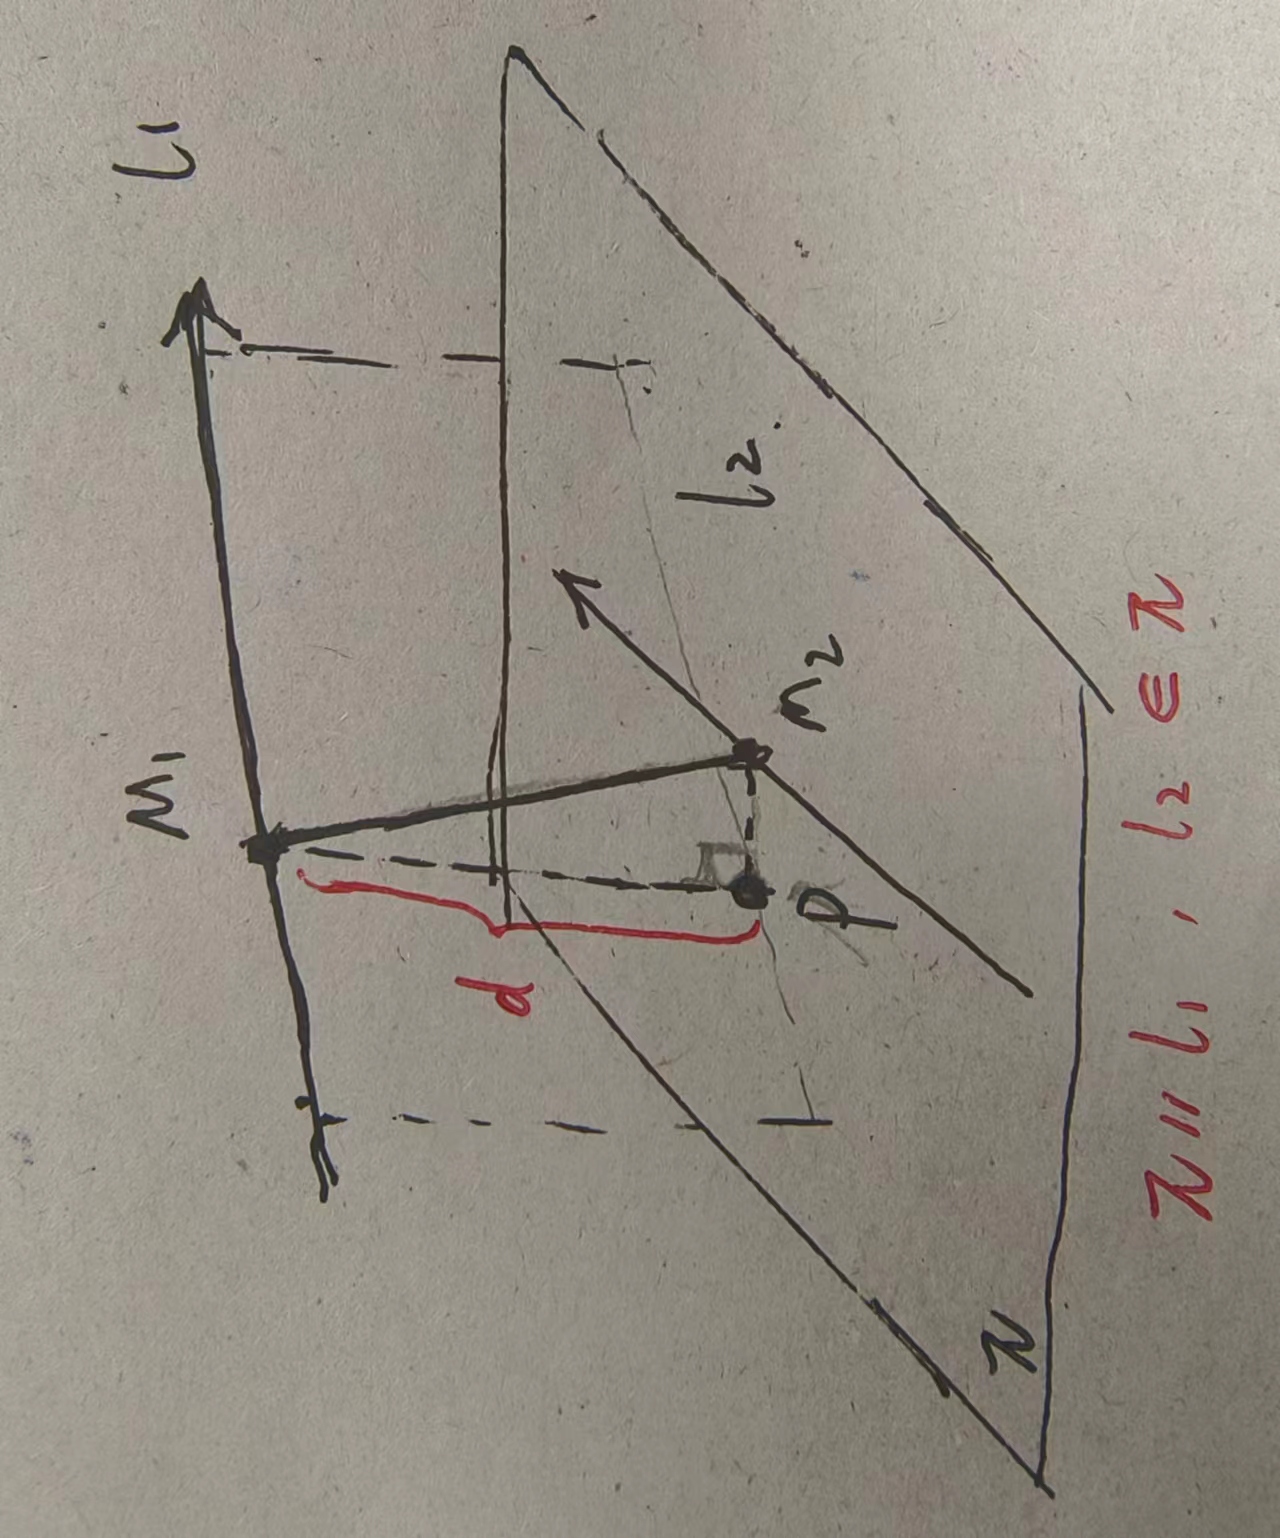 M₁
l₁
d
l₂
P
M₂
π
π // l₁ , l₂ ∈ π